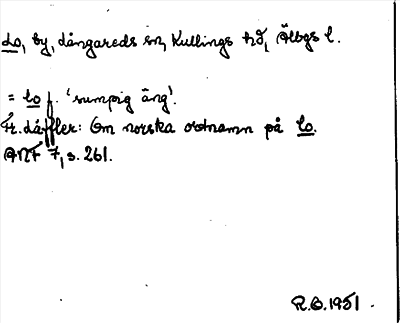 Lo, by, Långareds sn, Kullings hd, Älvbgs l.
= lo f. 'sumpig äng'.
Fr. Läffler: Om norska ordnamn på lo.
ANF 7, s. 261.
R.O. 1951.